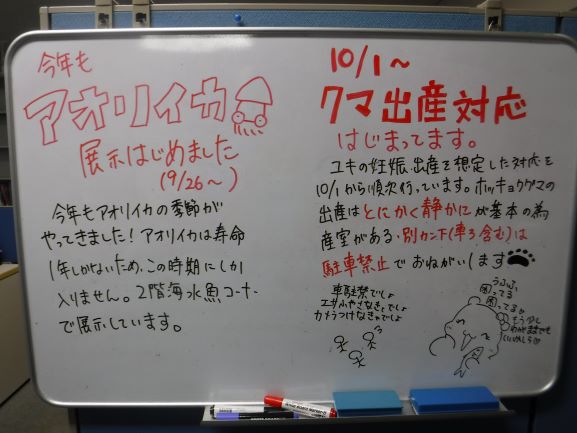 今年も
アオリイカ
展示はじめました
(9/26〜)
今年もアオリイカの季節が
やってきました！アオリイカは寿命
1年しかないため、この時期にしか
入りません。2階海水魚コーナー
で展示しています。
10/1〜
クマ出産対応
はじまってます。
ユキの妊娠、出産を想定した対応を
10/1から順次行っています。ホッキョクグマの
出産はとにかく静かにが基本の為
産室がある・別カンド(車3含む)は
駐車禁止でおねがいします
車駐禁でしょ
エサふやさなきゃでしょ
カメラつけなきゃでしょ
うふふ
困ってる
困ってる
もう少し
わがままでも
いいかしら